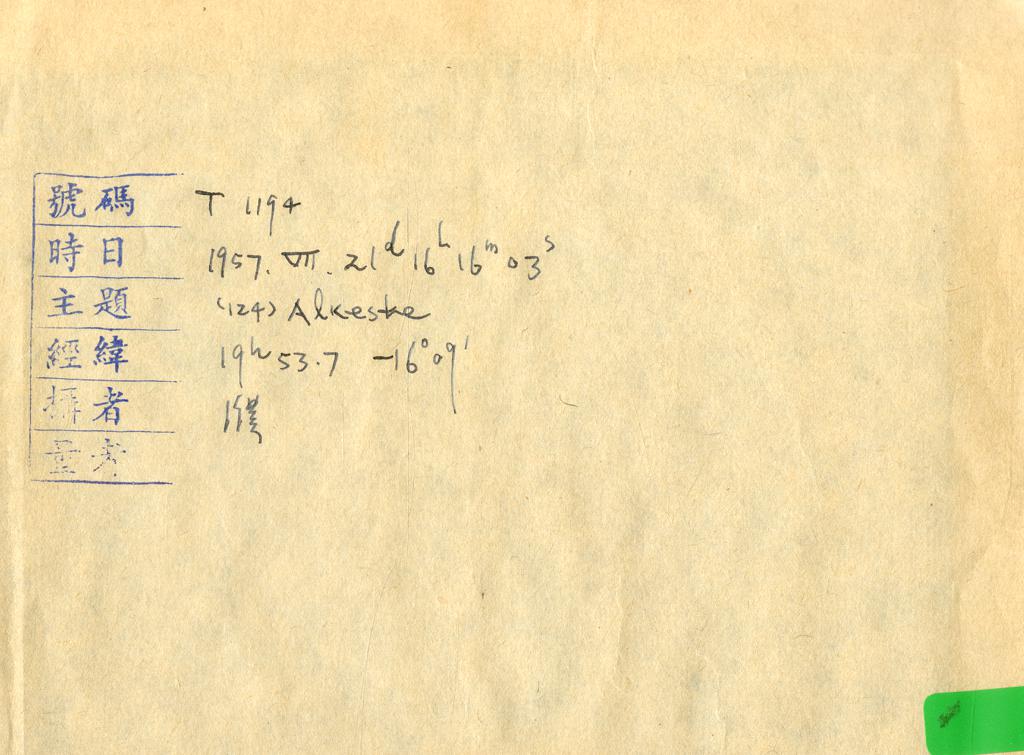 號碼 T 1194
時日 1957. VII. 21ᵈ 16ʰ 16ᵐ 03ˢ
主題 (124) Alkeste
經緯 19ʰ 53.7 -16°09'
攝者 濮
量者